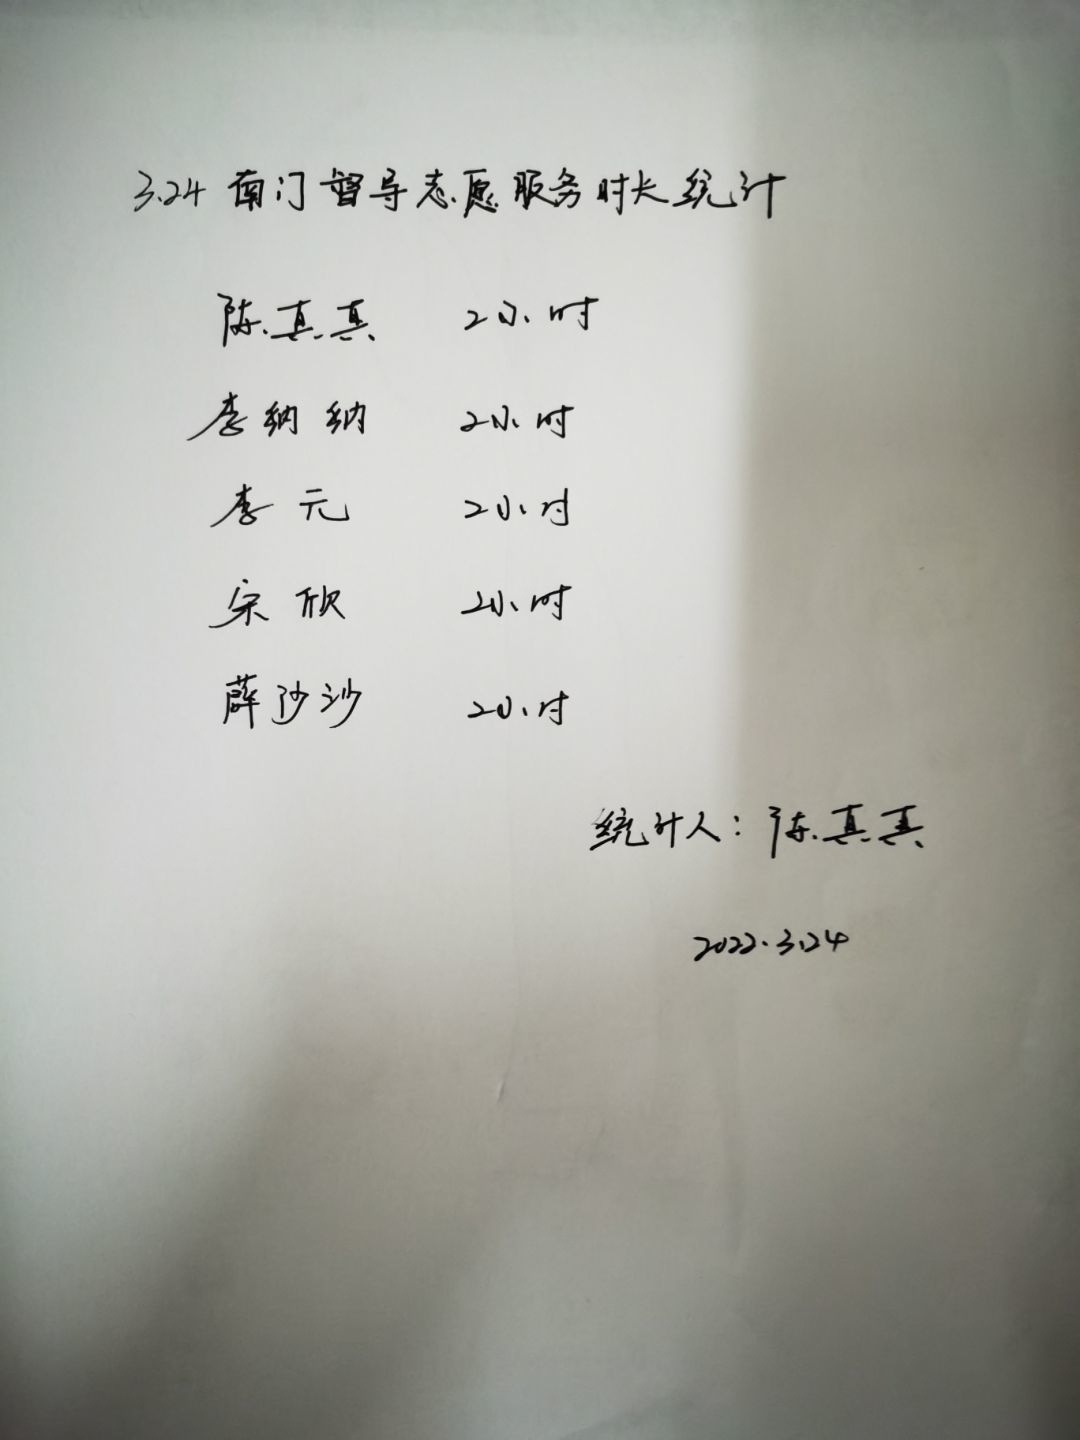 3.24 南门督导志愿服务时长统计
陈真真 2小时
李纳纳 2小时
李元 2小时
宋欣 2小时
薛沙沙 2小时
统计人：陈真真
2022.3.24